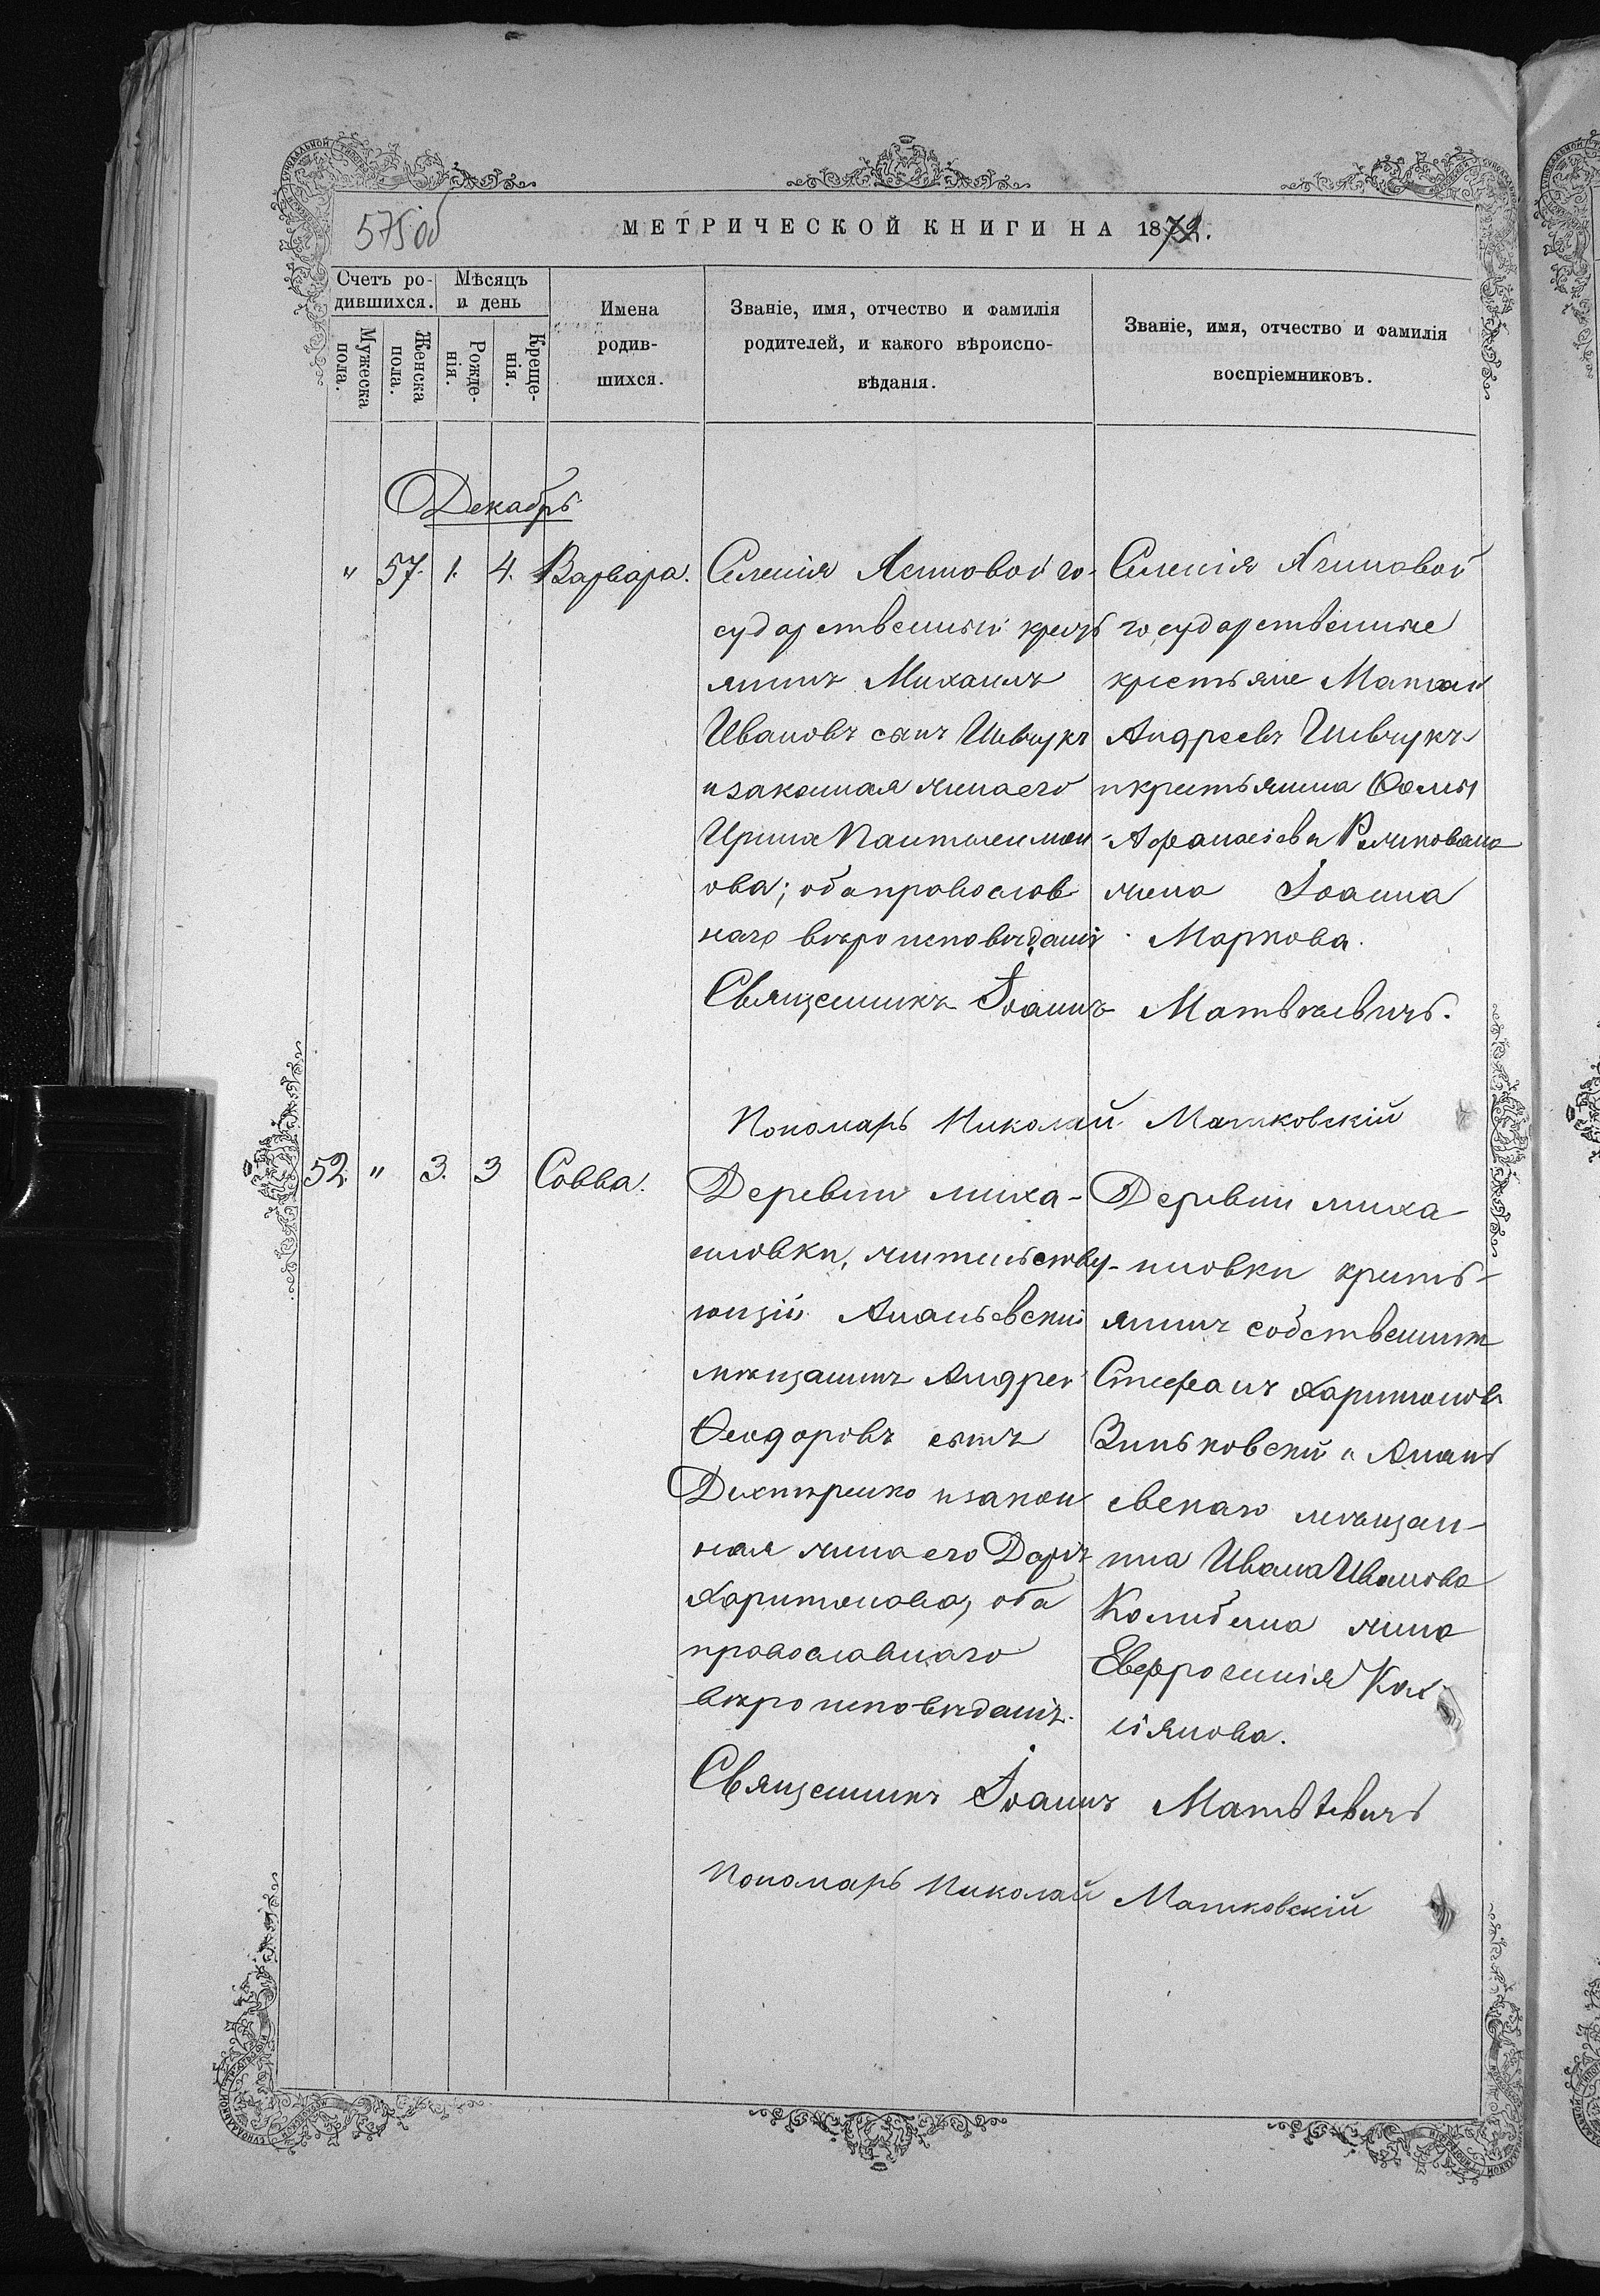 575 об
МЕТРИЧЕСКОЙ КНИГИ НА 1872.
Счетъ ро-
дившихся.
Мужеска
пола.
Женска
пола.
Мѣсяцъ
и день
Рожде-
нія.
Креще-
нія.
Имена
родив-
шихся.
Званіе, имя, отчество и фамилія
родителей, и какого вѣроиспо-
вѣданія.
Званіе, имя, отчество и фамилія
воспріемниковъ.
Декабрь
" 57. 1. 4. Варвара.
Селенія Ясиновой го-
сударственный кресть
янинъ Михаилъ
Ивановъ сынъ Шевчукъ
и законная жена его
Ирина Пантелеимон
ова; оба православ
наго вѣроисповѣданія
Селенія Ясиновой
государственные
крестьяне Матвей
Андреевъ Шевчукъ
и крестьянина Ѳомы
Афанасіева
жена Іоанна
Маркова.
Священникъ Іоаннъ Матвѣевичъ.
Пономарь Николай Матковскій
52. " 3. 3 Савва.
Деревни Миха-
иловки, жительству-
ющій Ананьевскій
мѣщанинъ Андрей
Ѳеодоровъ сынъ
Дихтяренко и закон
ная жена его Дарія
Харитонова, оба
православнаго
вѣроисповѣданія.
Деревни Миха-
иловки кресть-
янинъ собственникъ
Стефанъ Харитоновъ
Зиньковскій и Анань
евскаго мѣщан-
ина Ивана Иванова
жена
Евфросинія Кас
сіянова.
Священникъ Іоаннъ Матвѣевичъ
Пономарь Николай Матковскій